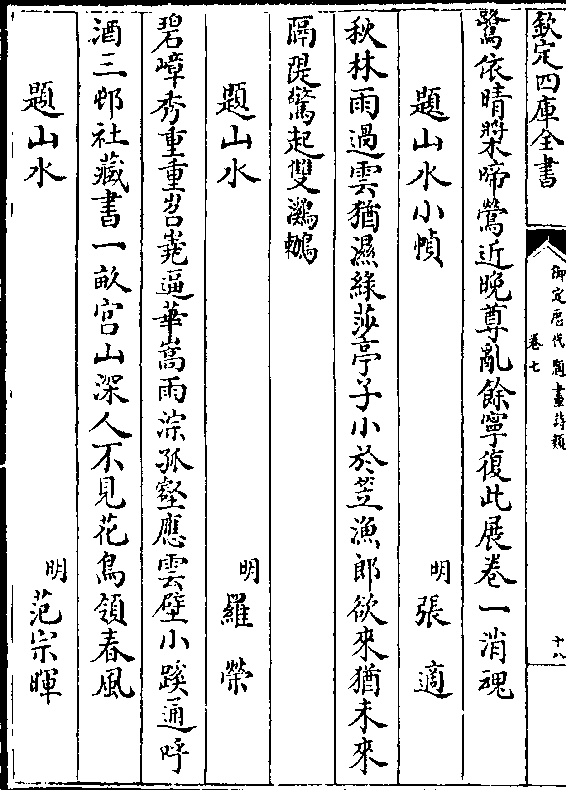 欽定四庫全書
御定歷代題畫詩類
卷七
十八
鷺依晴㮣啼鶯近晚尊亂餘寧復此展卷一消魂
題山水小幀
明
張適
秋林雨過雲猶濕綠莎亭子小於笠漁郎欲來猶未來
隔隄驚起雙鸂鶒
題山水
明
羅榮
碧嶂秀重重岧嶤逼華嵩雨淙孤壑應雲壁小蹊通呼
酒三邨社藏書一畝宮山深人不見花鳥領春風
題山水
明
范宗暉